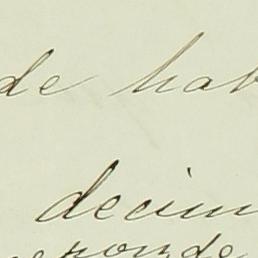 de hab
decim
ronde